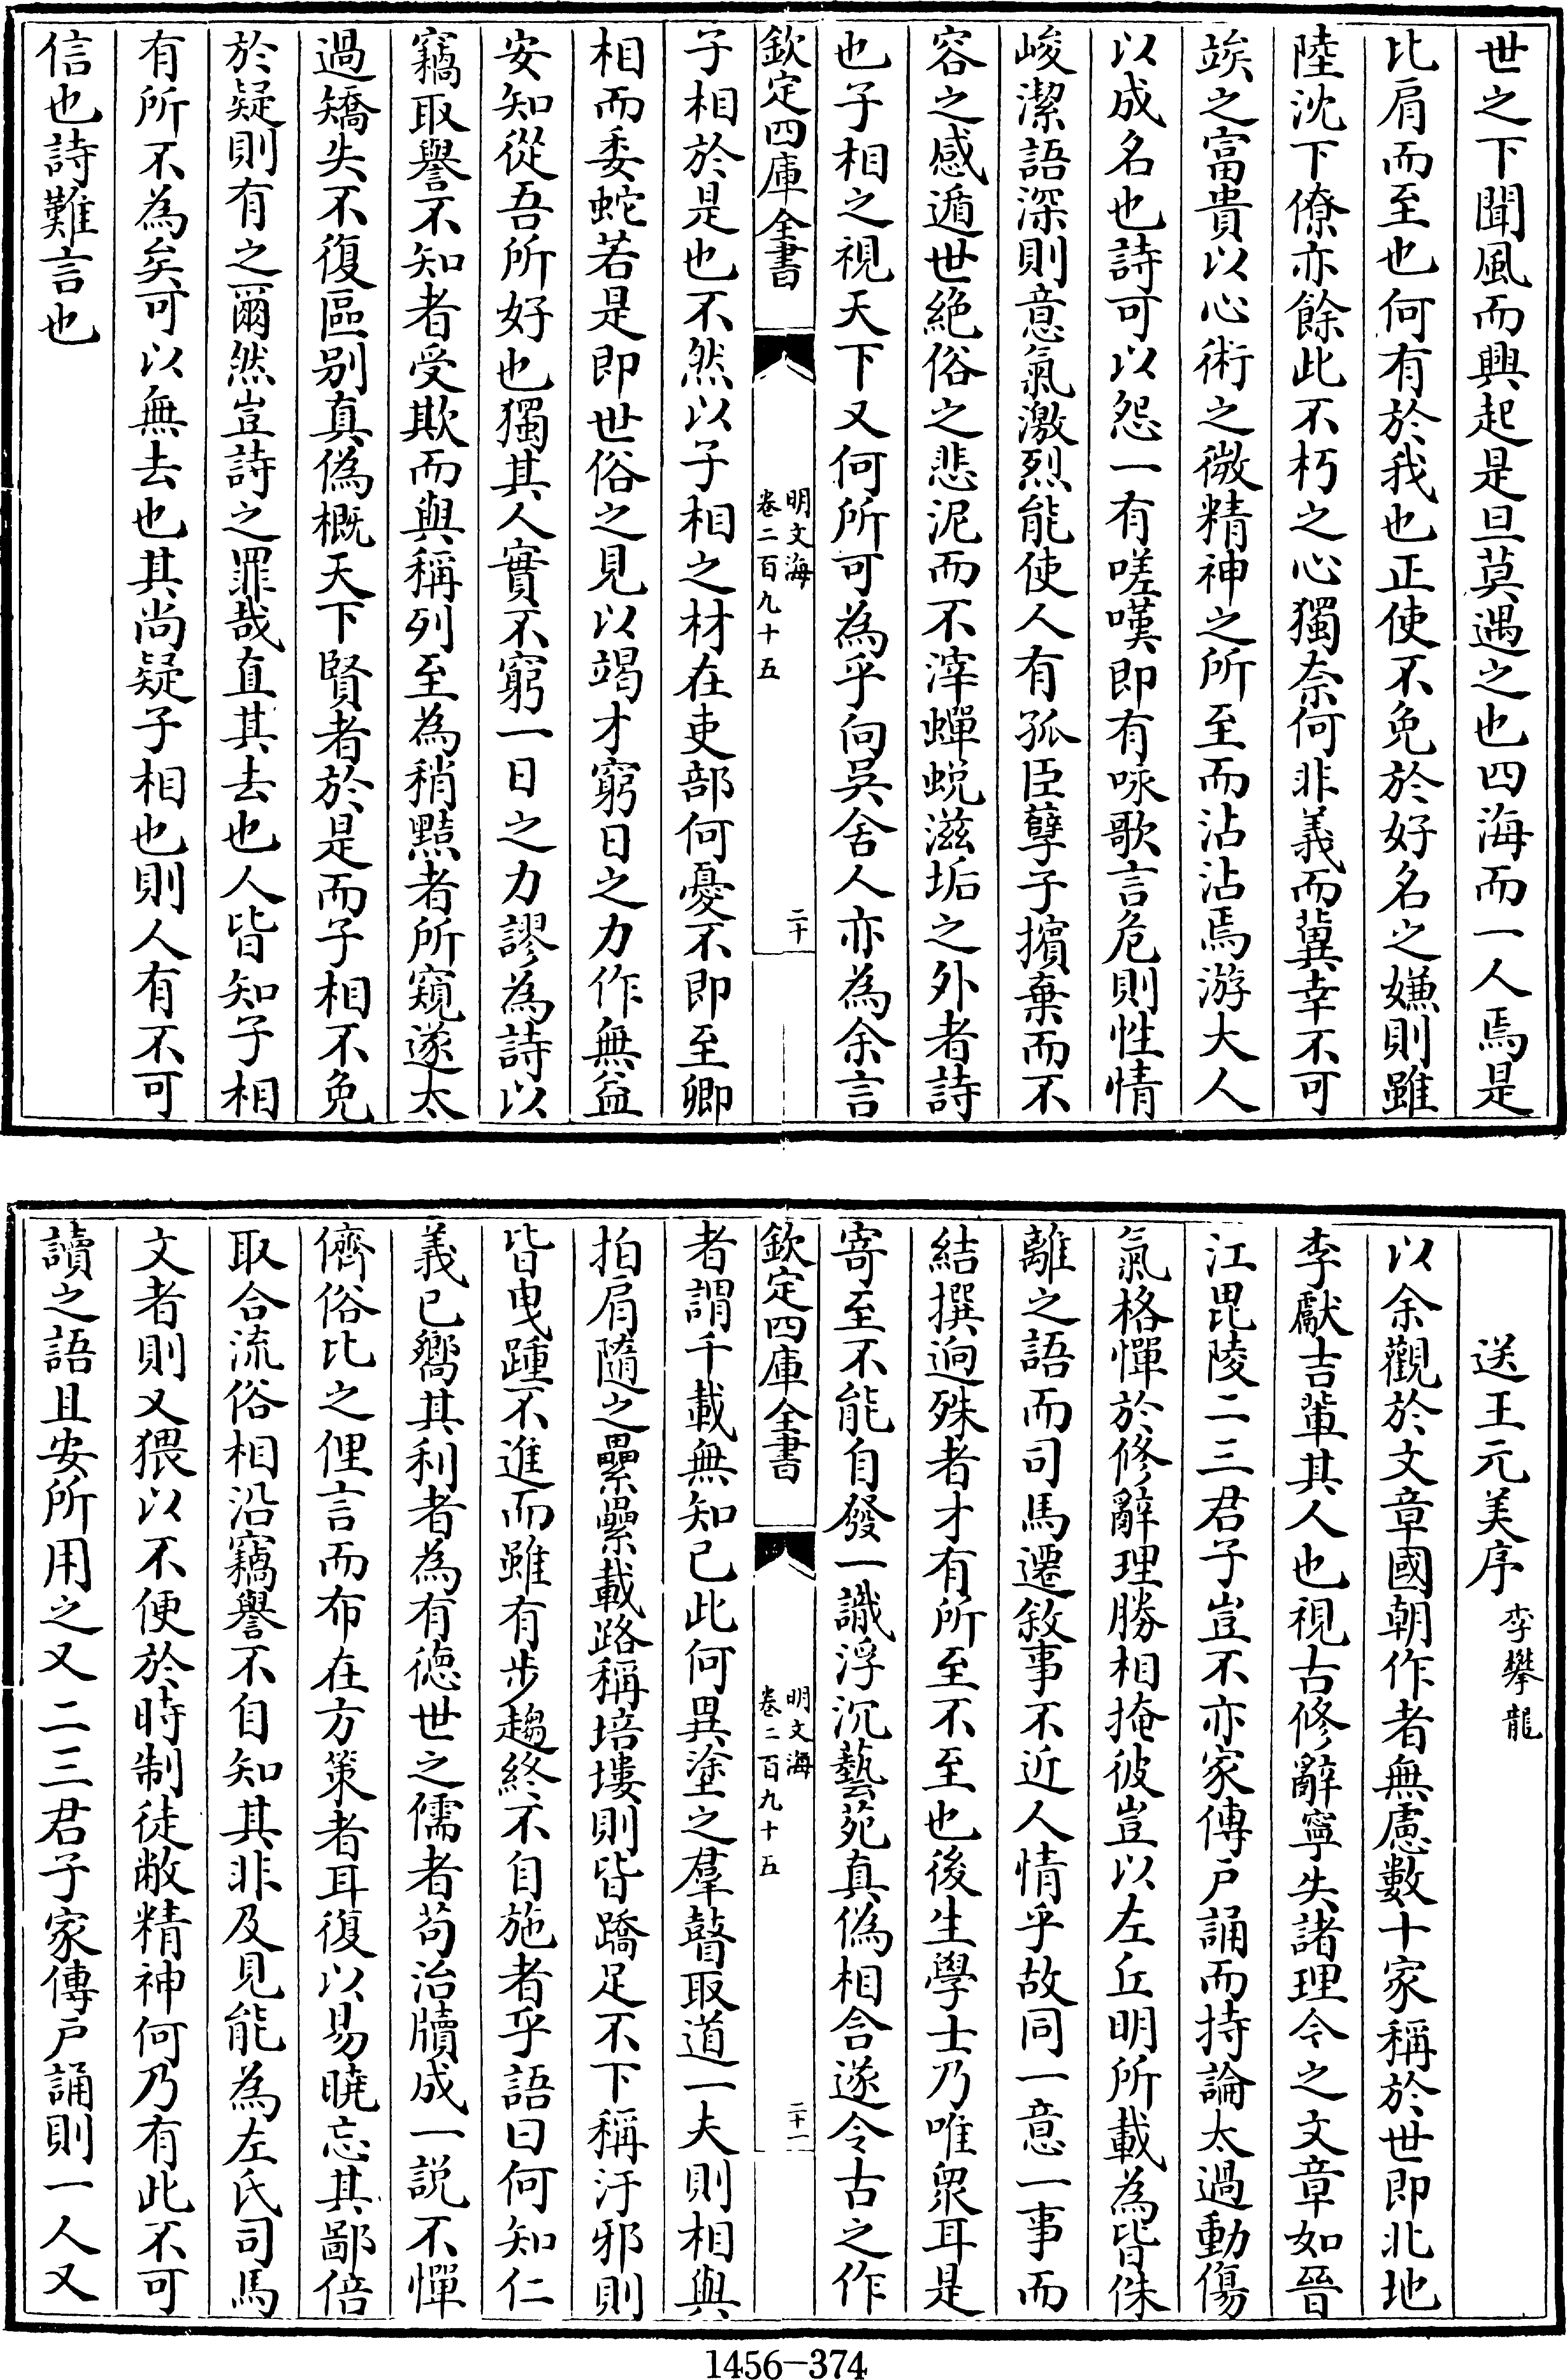 世之下聞風而興起是旦莫遇之也四海而一人焉是
比肩而至也何有於我也正使不免於好名之嫌則雖
陸沈下僚亦餘此不朽之心獨奈何非義而冀幸不可
竢之富貴以心術之微精神之所至而沾沾焉游大人
以成名也詩可以怨一有嗟嘆即有咏歌言危則性情
峻潔語深則意氣激烈能使人有孤臣孽子擯棄而不
容之感遁世絶俗之悲泥而不滓蟬蜕滋垢之外者詩
也子相之視天下又何所可為乎向吳舍人亦為余言
欽定四庫全書
明文海
卷二百九十五
二十
子相於是也不然以子相之材在吏部何憂不即至卿
相而委蛇若是即世俗之見以竭才窮日之力作無益
安知從吾所好也獨其人實不窮一日之力謬為詩以
竊取譽不知者受欺而與稱列至為稍黠者所窺遂太
過矯失不復區别真偽概天下賢者於是而子相不免
於疑則有之爾然豈詩之罪哉直其去也人皆知子相
有所不為矣可以無去也其尚疑子相也則人有不可
信也詩難言也
送王元美序 李攀龍
以余觀於文章國朝作者無慮數十家稱於世即北地
李獻吉輩其人也視古修辭寧失諸理今之文章如晉
江毘陵二三君子豈不亦家傳戶誦而持論太過動傷
氣格憚於修辭理勝相掩彼豈以左丘明所載為皆侏
離之語而司馬遷敘事不近人情乎故同一意一事而
結撰逈殊者才有所至不至也後生學士乃唯眾耳是
寄至不能自發一識浮沉藝苑真偽相含遂令古之作
欽定四庫全書
明文海
卷二百九十五
二十一
者謂千載無知已此何異塗之羣瞽取道一夫則相與
拍肩隨之纍纍載路稱培塿則皆蹻足不下稱汙邪則
皆曳踵不進而雖有步趨終不自施者乎語曰何知仁
義已嚮其利者為有德世之儒者苟治牘成一説不憚
儕俗比之俚言而布在方策者耳復以易曉忘其鄙倍
取合流俗相沿竊譽不自知其非及見能為左氏司馬
文者則又猥以不便於時制徒敝精神何乃有此不可
讀之語且安所用之又二三君子家傳戶誦則一人又
1456-374